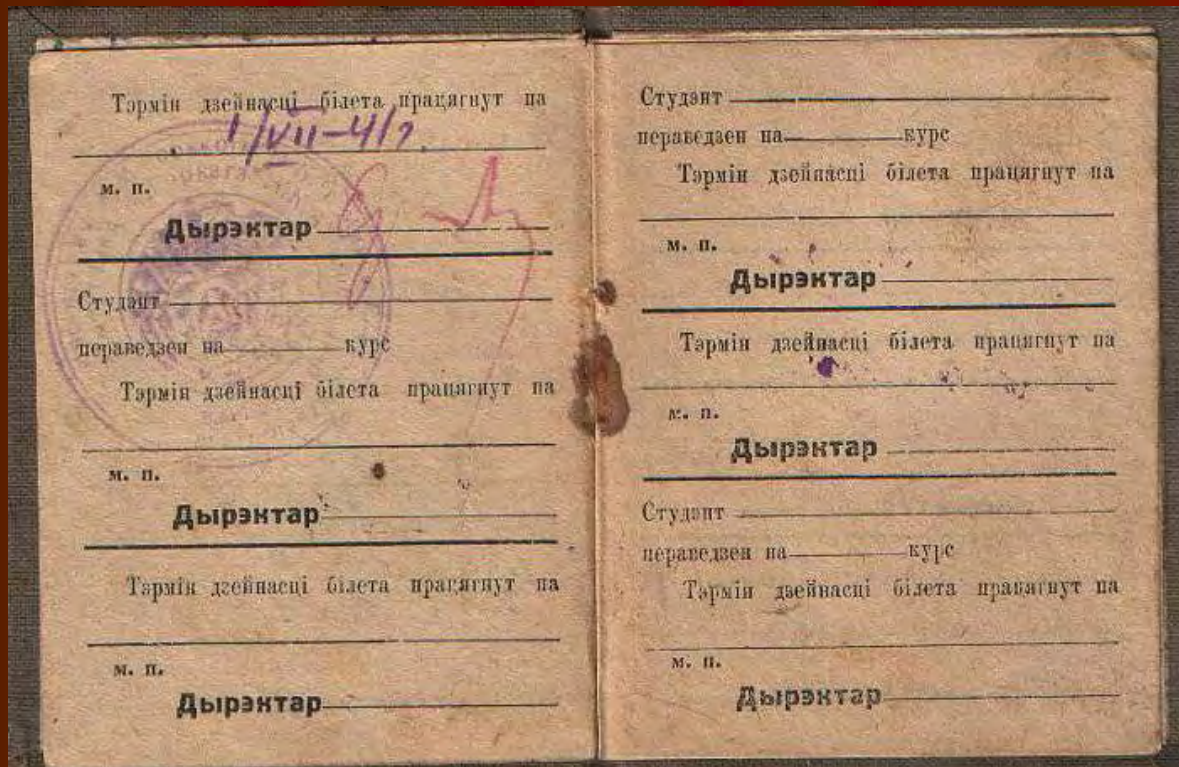 Тэрмін дзейнасці білета працягнут на
1/VII-41 г.
м. п.
Дырэктар
Студэнт
пераведзен на курс
Тэрмін дзейнасці білета працягнут на
м. п.
Дырэктар
Тэрмін дзейнасці білета працягнут на
м. п.
Дырэктар
Студэнт
пераведзен на курс
Тэрмін дзейнасці білета працягнут на
м. п.
Дырэктар
Тэрмін дзейнасці білета працягнут на
м. п.
Дырэктар
Студэнт
пераведзен на курс
Тэрмін дзейнасці білета працягнут на
м. п.
Дырэктар